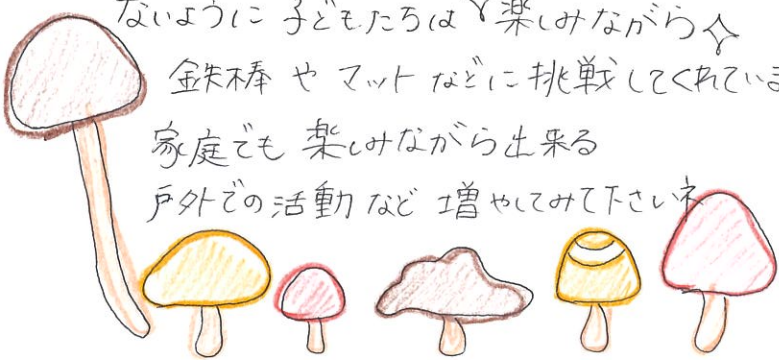 ないように 子どもたちは 楽しみながら
鉄棒 や マット などに 挑戦してくれていま
家庭でも 楽しみながら出来る
戸外での活動 など 増やしてみて下さいネ